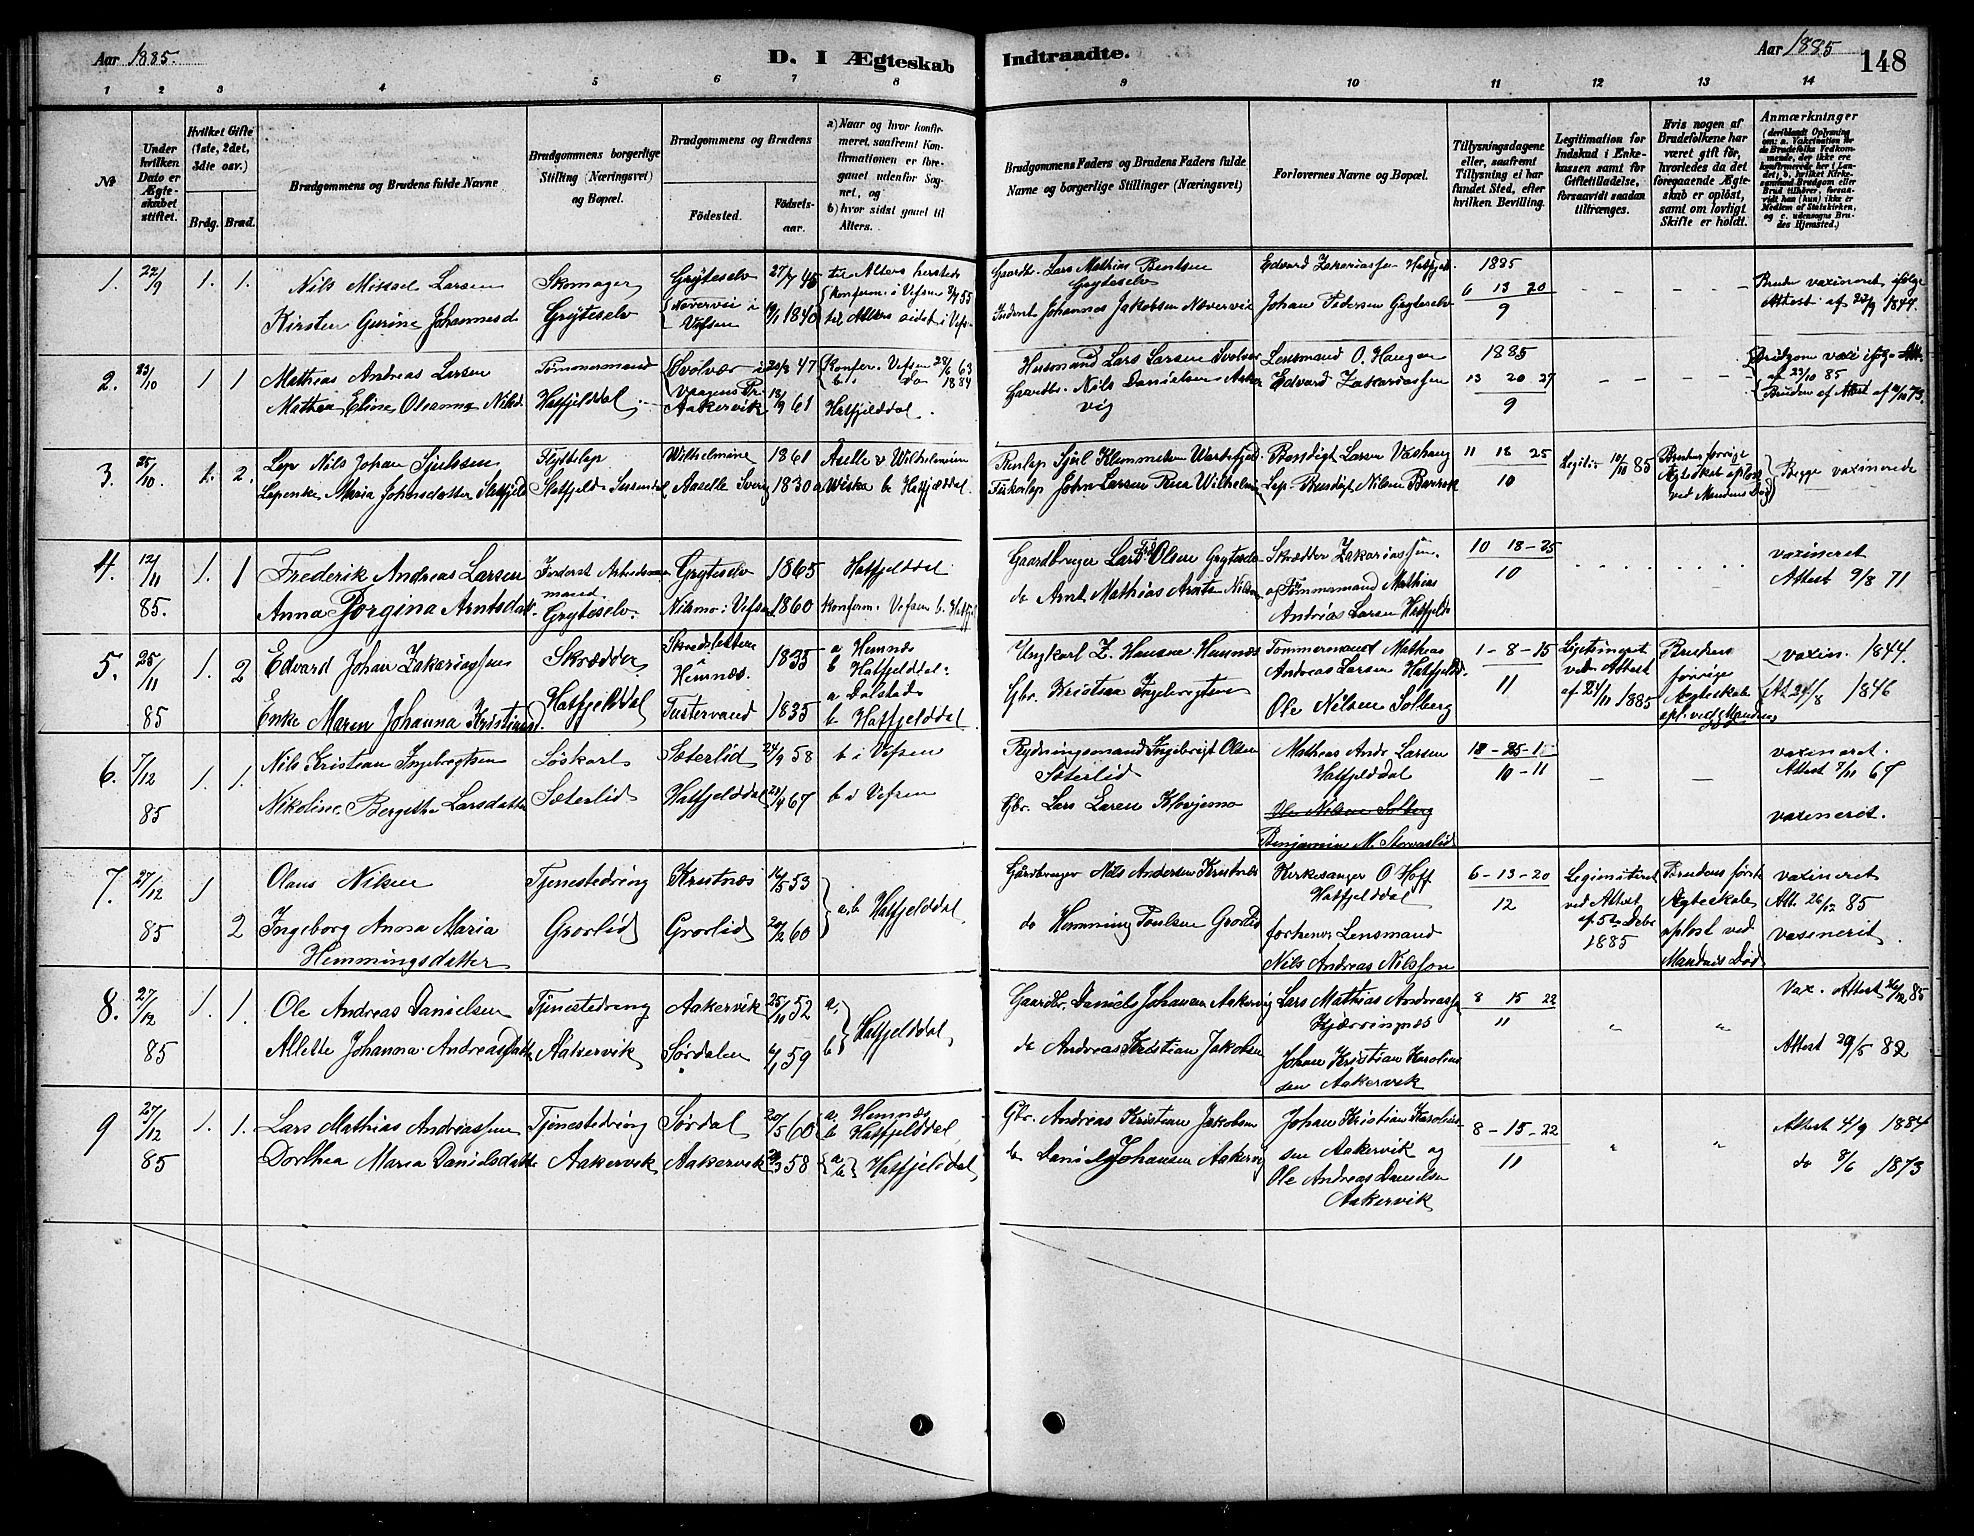 Aar 1885.
D. I Ægteskab Indtraadte.
Aar 1885
148
1 2 3 4 5 6 7 8 9 10 11 12 13 14
№
Under hvilken Dato er Ægteskabet stiftet.
Hvilket Gifte (1ste, 2det, 3die osv.)
Brdg. Brud.
Brudgommens og Brudens fulde Navne
Brudgommens borgerlige Stilling (Næringsvei) og Bopæl.
Brudgommens og Brudens
Fødested.
Fødselsaar.
a) Naar og hvor konfirmeret, saafremt Konfirmationen er foregaaet udenfor Sognet, og
b) hvor sidst gaaet til Alters.
Brudgommens Faders og Brudens Faders fulde Navne og borgerlige Stillinger (Næringsvei)
Forlovernes Navne og Bopæl.
Tillysningsdagene eller, saafremt Tillysning ei har fundet Sted, efter hvilken Bevilling.
Legitimation for Indskud i Enkekassen samt for Giftetilladelse, forsaavidt saadan tiltrænges.
Hvis nogen af Brudefolkene har været gift før, hvorledes da det foregaaende Ægteskab er opløst, samt om lovligt Skifte er holdt.
Anmærkninger
(deriblandt Oplysning om: a. Vaksination for de Brudefolks Vedkommende, der ikke ere konfirmerede her i Landet; b. hvilket Kirkesamfund Brudgom eller Brud tilhører, forsaavidt han (hun) ikke er Medlem af Statskirken, og c. udensogns Brudes Hjemsted.)
1. 22/9 1. 1. Nils Missael Larsen Skomager Grøteselv 27/7 45 til Alters hersteds Gaardbr. Lars Mathias Bentsen Grøteselv Edvard Zakariassen Hatfjeld. 1885
Kirsten Gurine Johannesd Grøteselv Nævervei i Vefsen 1840 Konferm. i Vefsen 55 til Alters sidst i Vefs. Johannes Jakobsen Nævervei Johan Pedersen Grøteselv 6 13 20 / 9 Bruden vaxineret ifølge Attest af 22/9 1844.
2. 23/10 1 1 Mathias Andreas Larsen Tømmermand Svolvær i Vaagens Pr. 47 Konfer. i Vefsen 28/6 63 b. i do 1884 Husmand Lars Larsen Svolvær Lensmand O. Haugen 1885
Mathea Eline Oleanna Nilsd. Hatfjelddal Aakervik 18/9 61 Hatfjelddal. Gaardbr. Nils Danielsen Aakervig Edvard Zakariassen 13 20 27 / 9 Brudgom vaxi ifølge Att. af 23/10 85 Bruden af Attest af 73.
3. 25/10 1. 2. Lap Nils Johan Sjulsen Flytlap Wilhelmine 1861 Aselle v Wilhelmine Sjul Klemmetsen Larsen 11 18 25 Legitim 10/10 85 Brudens forrige Ægteskab opløst ved Mandens Død
Lapenke Maria Johnsdatter Hatfjeld Susendal Aaselle Sverig 1830 b. Hatfjælddal. John Larsen Wilhelmin Lap. Nilsen 10 Begge vaxinerede
4. 12/11 85. 1. 1 Frederik Andreas Larsen Grøteselv 1865 Hatfjelddal Gaardbruger Lars Olsen Grøteselv Skrædder Zakariassen. 10 18-25 / 10 vaxineret
Anna Jorgina Arntsdatt. Grøteselv. Nilsmo i Vefsen 1860 Konferm. i Vefsen do Arnt Mathias Arnts Nilsmo og Tømmermand Mathias Andreas Larsen Hatfjeldd Attest 9/8 71
5. 25/11 85 1. 2 Edvard Johan Zakariassen Skrædder Hemnæs. 1835 a Hemnæs b Hatfjelddal: Ungkarl Z. Hansen Hemnæs Tømmermand Mathias Andreas Larsen Hatfjeldd. 1-8-15 / 11 Legitimeret ved Attest af 24/11 1885 Brudens forrige Ægteskab opl. ved Mandens vaxin. 1844.
Enke Maren Johanna Kristiansd. Hatfjelddal Tustervand 1835 a Dolstad b Hatfjelddal Gbr. Kristian Ingebrigtsen Ole Nilsen Solberg At 24/8 1846
6. 7/12 85 1. 1. Nils Kristian Ingebrigtsen Søskarl Sæterlid 24/9 58 b i Vefsen Rydningsmand Ingebrigt Olsen Sæterlid Mathias Andr Larsen Hatfjelddal 18-25-1 / 10-11 vaxineret. Attest 7/11 67
Nikoline Bergitte Larsdatter Sæterlid Hatfjelddal 67 b i Vefsen Gbr. Lars Larsen Klovjemo Ole Nilsen Solberg Benjamin N. Storvaslid vaxineret.
7. 27/12 85 1 Olaus Nilsen Tjenestedreng Krutnæs 16/5 53 a, b Hatfjelddal Gårdbruger Nils Andersen Krutnæs Kirkesanger O Hoff Hatfjelddal 6-13-20 / 12 Legimiteret ved Attest af 5te Debr 1885 Brudens første Ægteskab opløst ved Mandens Død vaxineret Att. 26/12 85
2 Ingeborg Anna Maria Hemmingsdatter Grorlid Grorlid 20/2 60 do Hemming Poulsen Grorlid forhenv. Lensmand Nils Andreas Nilssen vaxinerit.
8. 27/12 85 1. 1. Ole Andreas Danielsen Tjenestedreng Aakervik 25/10 52 a, b Hatfjelddal Gaardbr. Daniel Johansen Aakervig Lars Mathias Andreassen Kjærringnæs 8 15 22 / 11 „ „ Vax. Attest 26/12 85
Allette Johanna Andreasdatt. Aakervik Sørdalen 59 do Andreas Kristian Jakobsen Johan Kristian Karoliussen Aakervik Attest 29/5 82
9 27/12 85 1. 1. Lars Mathias Andreassen Tjenestedreng Sørdal 20/5 60 a Hemnæs b Hatfjelddal Gbr. Andreas Kristian Jakobsen Johan Kristian Karoliussen Aakervik og 8-15-22 / 11 „ „ Attest 4/9 1884
Dorthea Maria Danielsdatte Aakervik Aakervik 58 a b Hatfjelddal Daniel Johansen Aakervig Ole Andreas Danielsen Aakervik do 8/6 1873